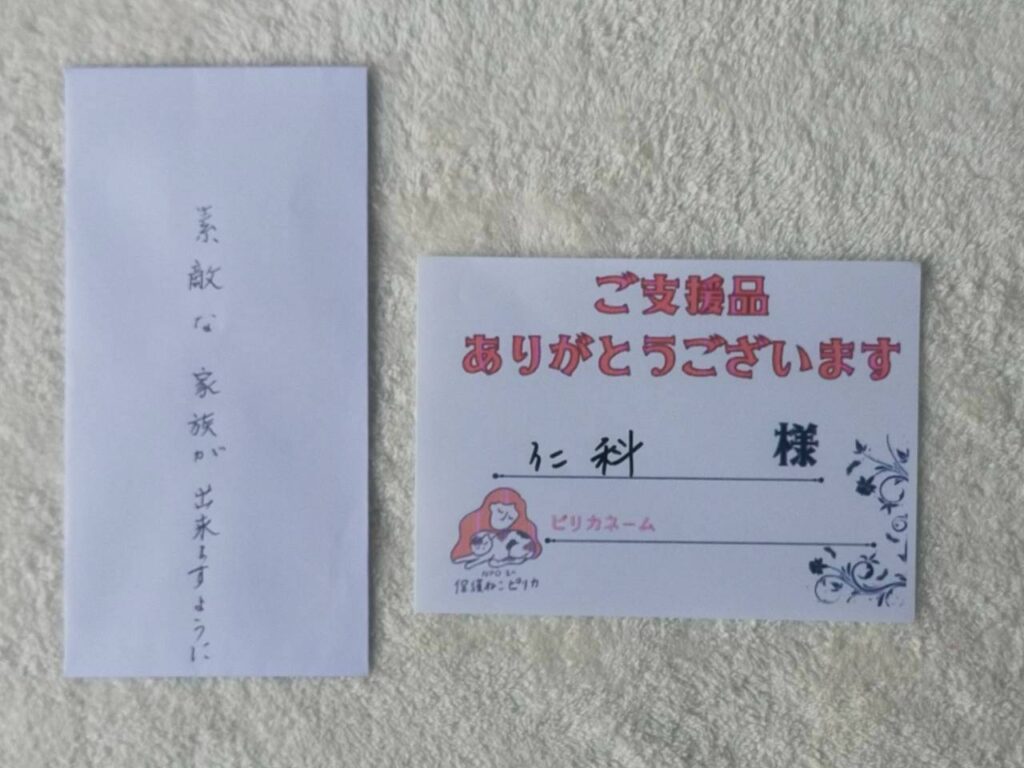 素敵な家族が出来ますように
ご支援品
ありがとうございます
仁科 様
ピリカネーム
保護ねこピリカ